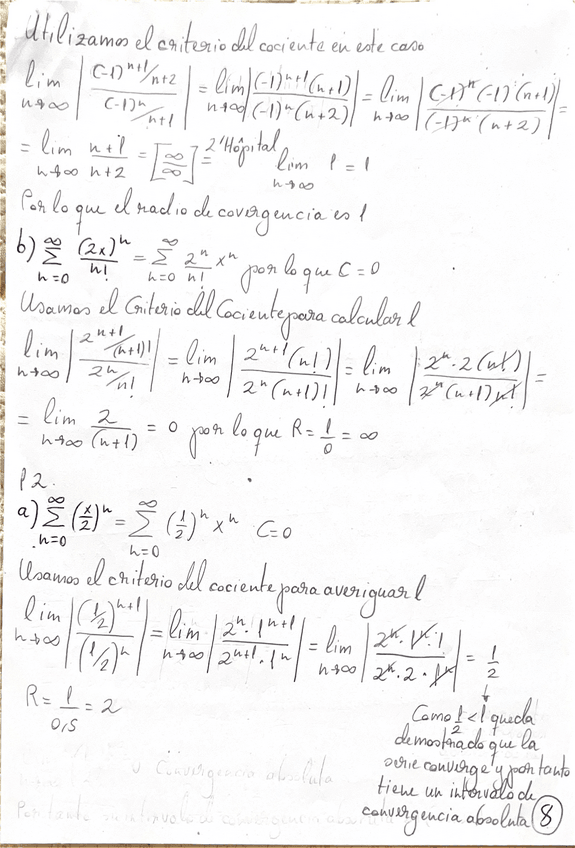 Utilizamos el criterio del cociente en este caso
lim n→∞ | ((-1)^{n+1}/n+2) / ((-1)^n/n+1) | = lim n→∞ | (-1)^{n+1}(n+1) / (-1)^n(n+2) | = lim n→∞ | (-1)^n(-1)^1(n+1) / (-1)^n(n+2) | =
= lim n→∞ n+1 / n+2 = [∞/∞] = L'Hôpital lim n→∞ 1 = 1
Por lo que el radio de covergencia es 1
b) ∑_{n=0}^{∞} (2x)^n / n! = ∑_{n=0}^{∞} 2^n / n! x^n por lo que C = 0
Usamos el Criterio del Cociente para calcular l
lim n→∞ | (2^{n+1}/(n+1)!) / (2^n/n!) | = lim n→∞ | 2^{n+1}(n!) / 2^n(n+1)! | = lim n→∞ | 2^n · 2(n!) / 2^n(n+1)n! | =
= lim n→∞ 2 / (n+1) = 0 por lo que R = 1/0 = ∞
12.
a) ∑_{n=0}^{∞} (x/2)^n = ∑_{n=0}^{∞} (1/2)^n x^n C=0
Usamos el criterio del cociente para averiguar l
lim n→∞ | (1/2)^{n+1} / (1/2)^n | = lim n→∞ | 2^n · 1^{n+1} / 2^{n+1} · 1^n | = lim n→∞ | 2^n · 1^n · 1 / 2^n · 2 · 1^n | = 1/2
R = 1/0,5 = 2
↓
Como 1/2 < 1 queda
demostrado que la
serie converge y por tanto
tiene un intervalo de
convergencia absoluta
8
Convergencia absoluta